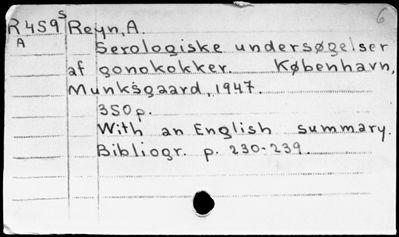 6
R459S Reyn, A.
A
Serologiske undersøgelser
af gonokokker. København,
Munksgaard, 1947.
350p.
With an English summary.
Bibliogr. p. 230-239.